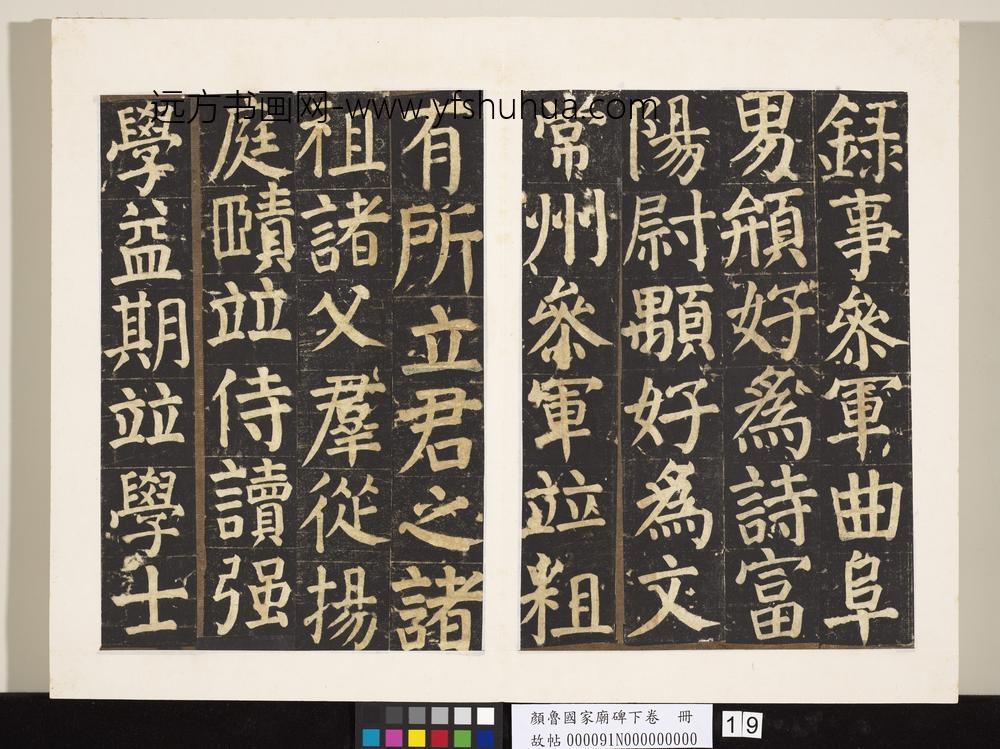 远方书画网-www.yfshuhua.com
録事參軍曲阜
男頯好爲詩富
陽尉顒好爲文
常州參軍並粗
有所立君之諸
祖諸父羣從揚
庭頤並侍讀强
學益期並學士
顏魯國家廟碑下卷 冊
故帖 000091N000000000
19